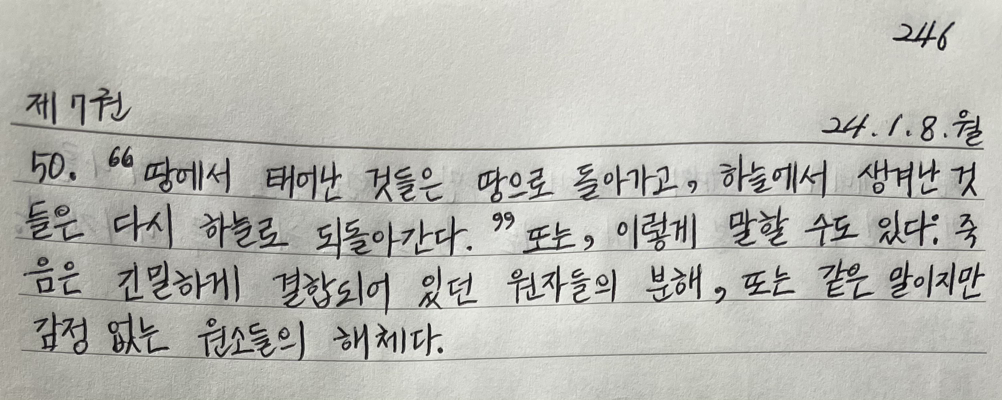 246
제 7권
24.1.8.월
50. “땅에서 태어난 것들은 땅으로 돌아가고, 하늘에서 생겨난 것
들은 다시 하늘로 되돌아간다.” 또는, 이렇게 말할 수도 있다: 죽
음은 긴밀하게 결합되어 있던 원자들의 분해, 또는 같은 말이지만
감정 없는 원소들의 해체다.